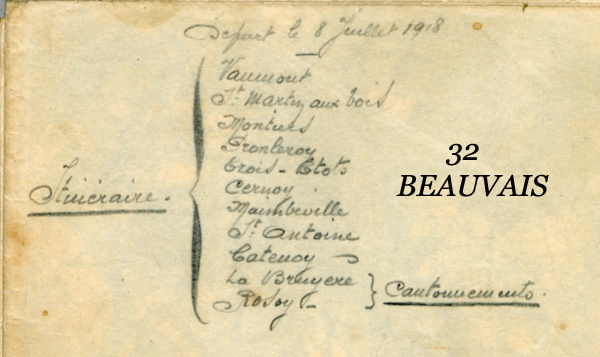 Départ le 8 Juillet 1918
Itinéraire.
Vaumont
St Martin aux bois
Montiers
Pronleroy
Trois-Etots
Cernoy
Maimbeville
St Antoine
Catenoy
La Bruyère
Rosoy -
Cantonnements.
32
BEAUVAIS